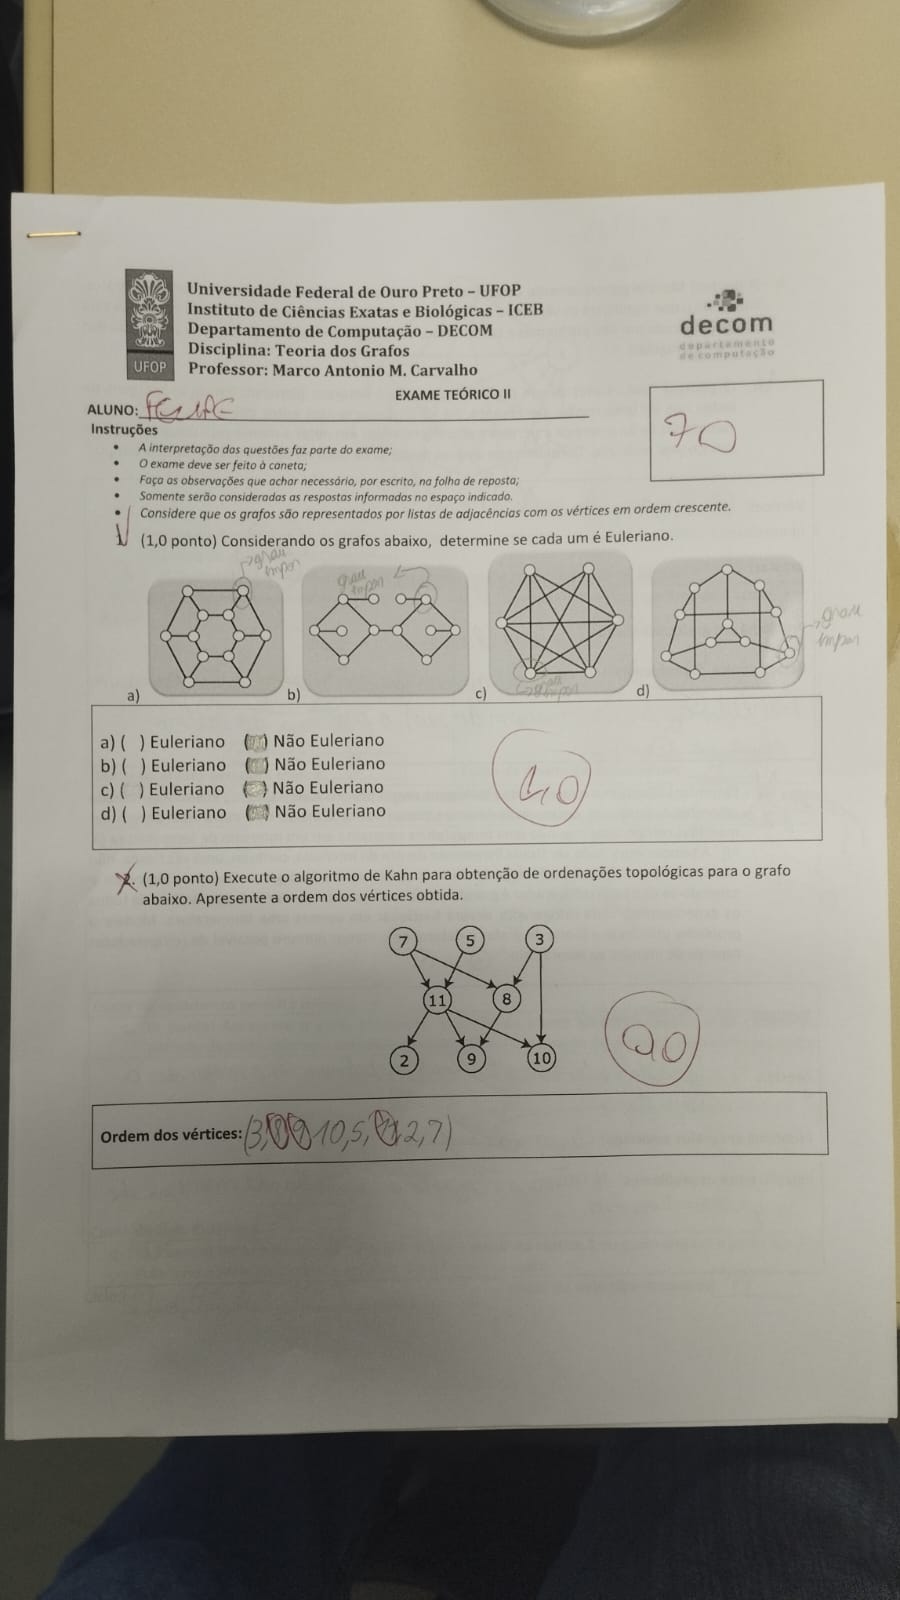 Universidade Federal de Ouro Preto – UFOP
Instituto de Ciências Exatas e Biológicas – ICEB
Departamento de Computação – DECOM
Disciplina: Teoria dos Grafos
Professor: Marco Antonio M. Carvalho
UFOP
decom
departamento
de computação
EXAME TEÓRICO II
ALUNO:
70
Instruções
• A interpretação das questões faz parte do exame;
• O exame deve ser feito à caneta;
• Faça as observações que achar necessário, por escrito, na folha de reposta;
• Somente serão consideradas as respostas informadas no espaço indicado.
• Considere que os grafos são representados por listas de adjacências com os vértices em ordem crescente.
(1,0 ponto) Considerando os grafos abaixo, determine se cada um é Euleriano.
grau
impar
grau
impar
grau
impar
grau
impar
a)
b)
c)
d)
a) ( ) Euleriano ( ) Não Euleriano
b) ( ) Euleriano ( ) Não Euleriano
c) ( ) Euleriano ( ) Não Euleriano
d) ( ) Euleriano ( ) Não Euleriano
1,0
2. (1,0 ponto) Execute o algoritmo de Kahn para obtenção de ordenações topológicas para o grafo
abaixo. Apresente a ordem dos vértices obtida.
7 5 3
11 8
2 9 10
0,0
Ordem dos vértices: (3,8,9,10,5,11,2,7)